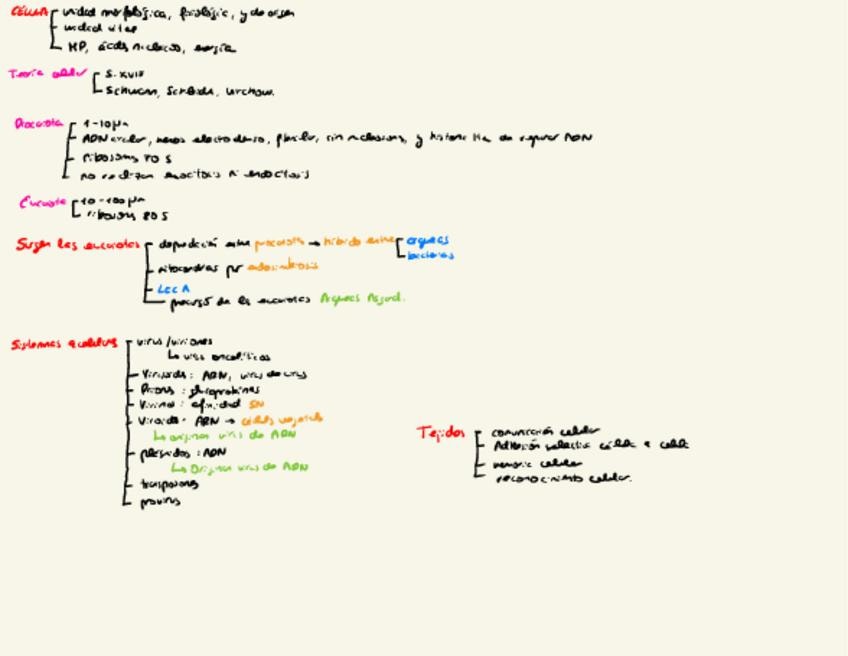 CÉLULA unidad morfológica, fisiológica, y de origen
unidad vital
MP, ácidos nucleicos, energía
Teoría celular S. XVIII
Schwann, Schleiden, Virchow.
Procariota 1-10 μm
ADN circular, menos electrodenso, plegado, sin nucleosomas, y
ribosomas 70 S
no realizan exocitosis ni endocitosis
Eucariota 10-100 μm
ribosomas 80 S
Surgen las eucariotas depredación entre procariotas → híbrido entre arqueas
bacterias
mitocondrias por endosimbiosis
LECA
precursor de las eucariotas Arqueas Asgard.
Sistemas acelulares virus/viriones
↳ virus oncolíticos
Virusoides: ARN, virus de virus
Priones: glucoproteínas
Virinos: afinidad SN
Viroides: ARN → células vegetales
↳ originan virus de ARN
plásmidos: ADN
↳ Originan virus de ADN
transposones
provirus
Tejidos comunicación celular
Adhesión selectiva célula a célula
memoria celular
reconocimiento celular.